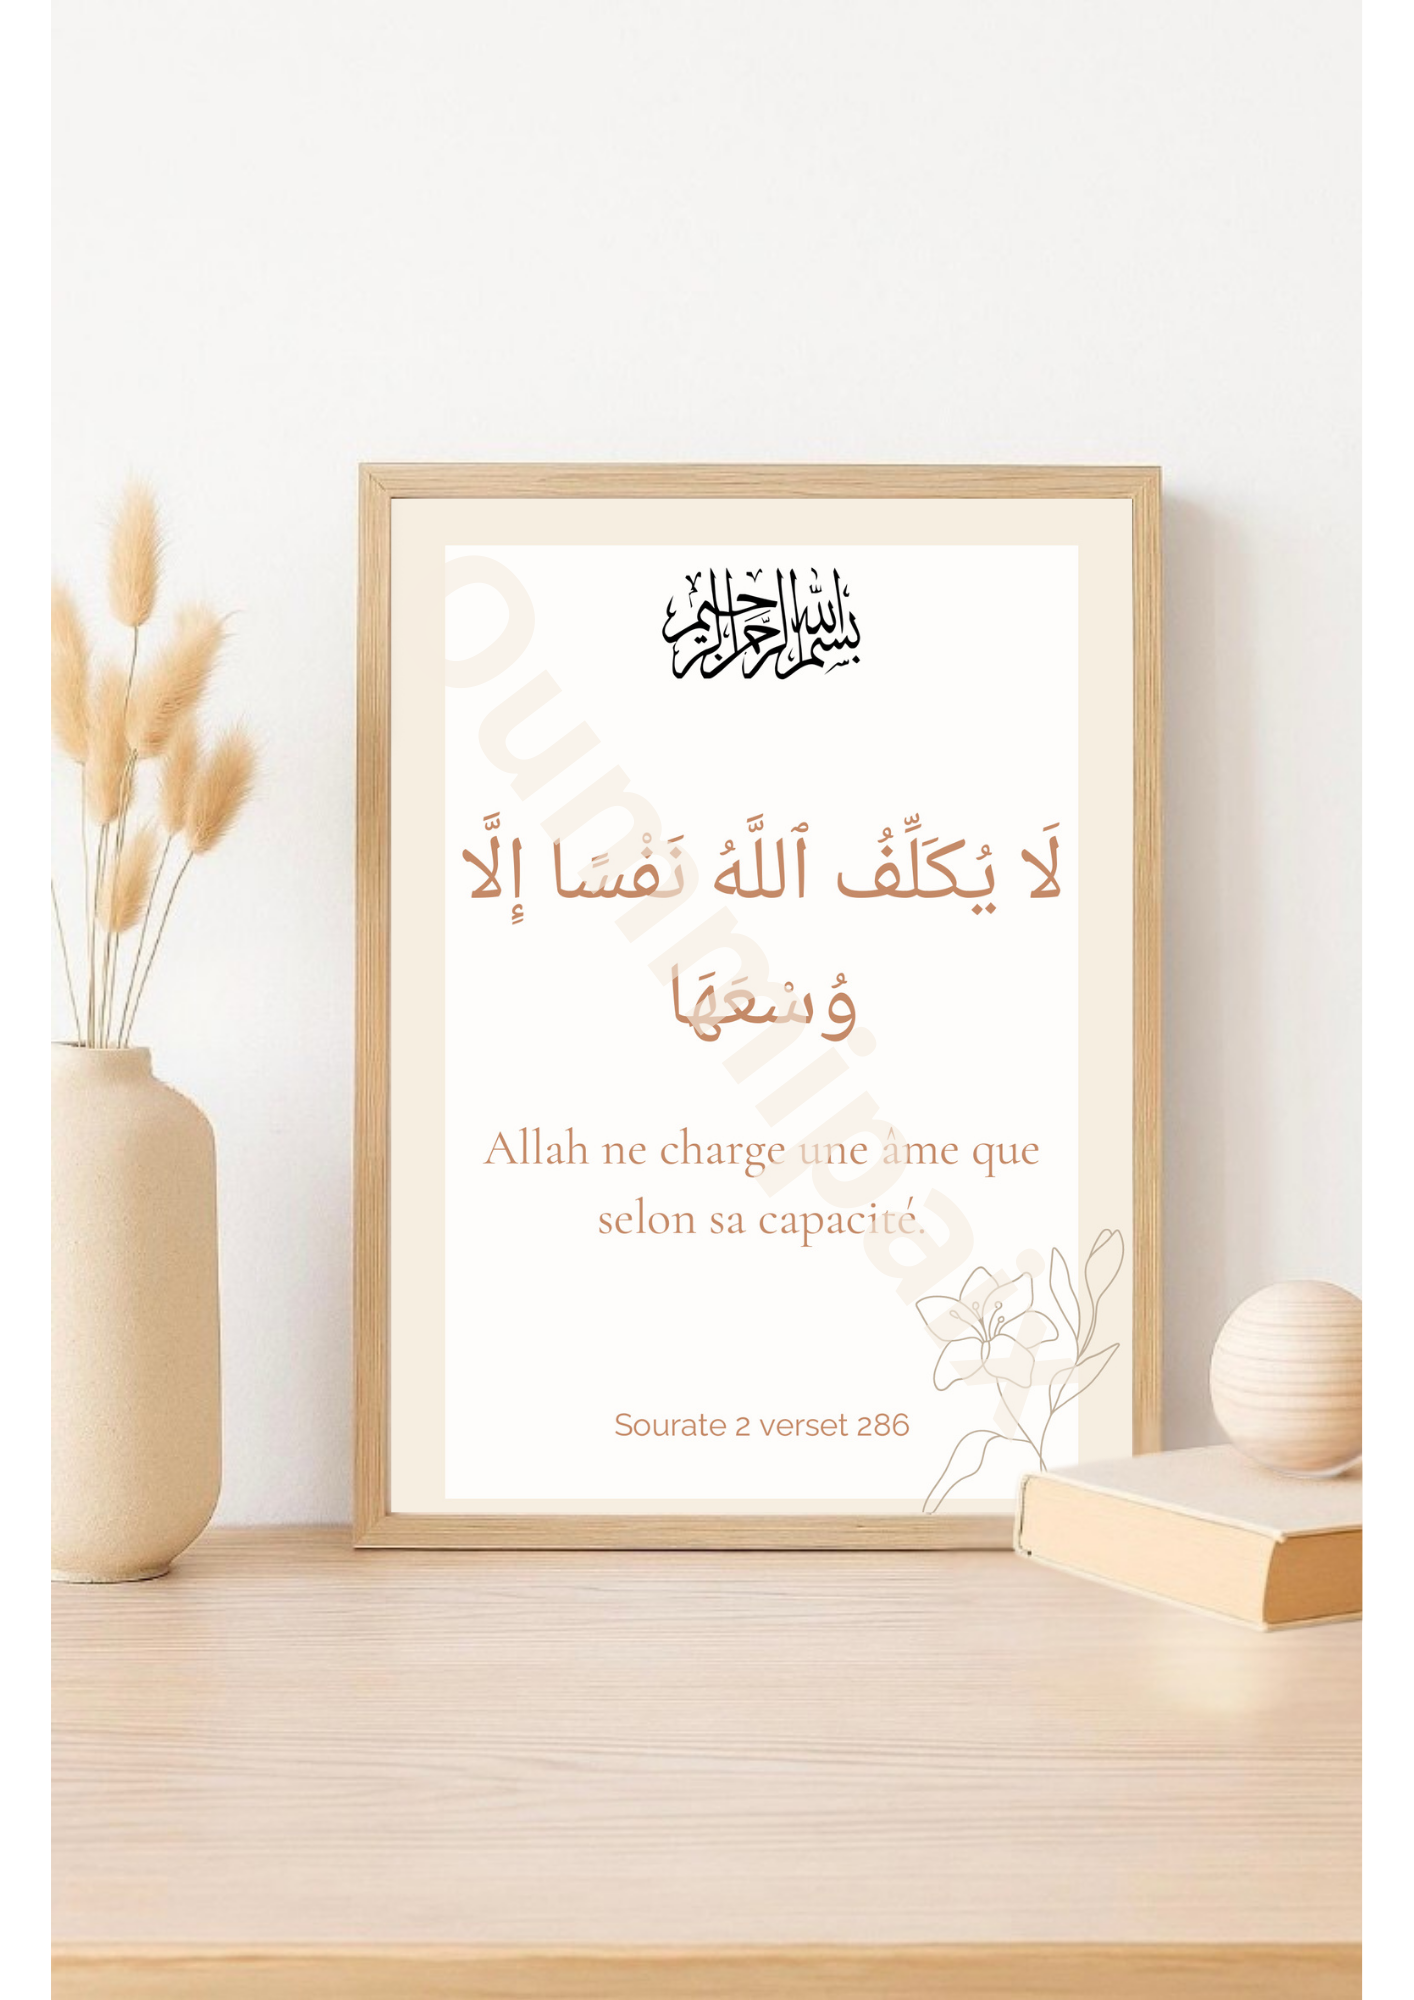 بسم الله الرحمن الرحيم
لَا يُكَلِّفُ ٱللَّهُ نَفْسًا إِلَّا
وُسْعَهَا
Allah ne charge une âme que
selon sa capacité.
Sourate 2 verset 286
oummipaix